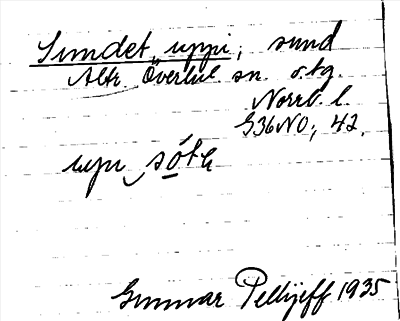 Sundet, uppi, sund
Altr. Överlul. sn. o. tg.
Norrb. l.
G36NO, 42.
upı sóte
Gunnar Pellijeff 1935